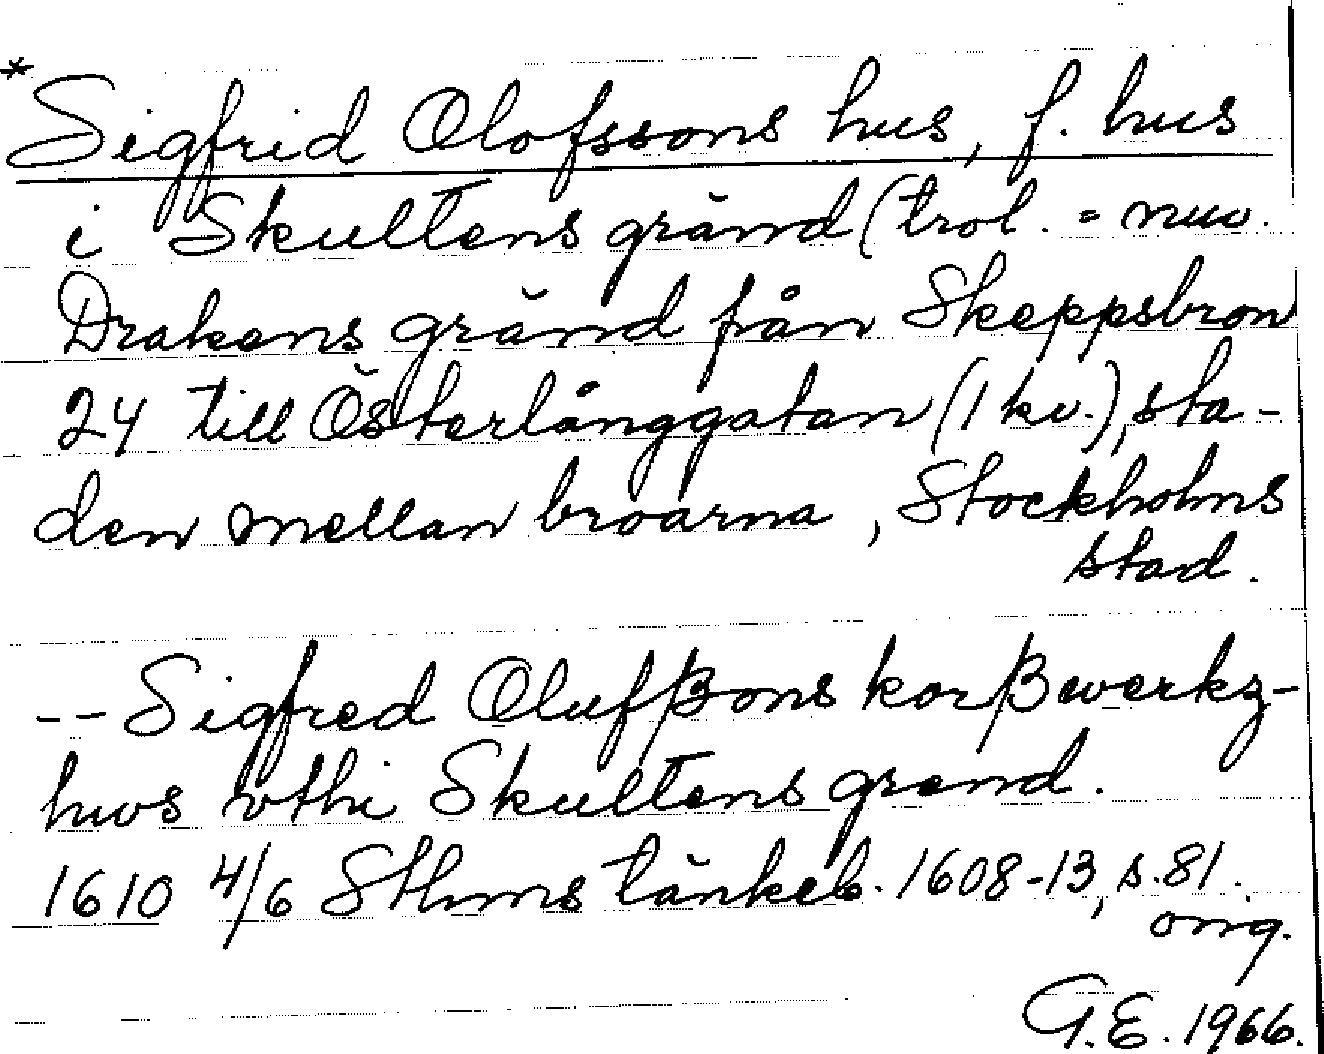 * Sigfrid Olofssons hus, f. hus
i Skultens gränd (trol. = nuv.
Drakens gränd från Skeppsbron
24 till Österlånggatan (1 kv.), sta-
den mellan broarna, Stockholms
stad.
-- Sigfred Olufßons korßwerkz-
hws vthi Skultens grend.
1610 4/6 Sthms tänkeb. 1608-13, s. 81.
orig.
G.E. 1966.